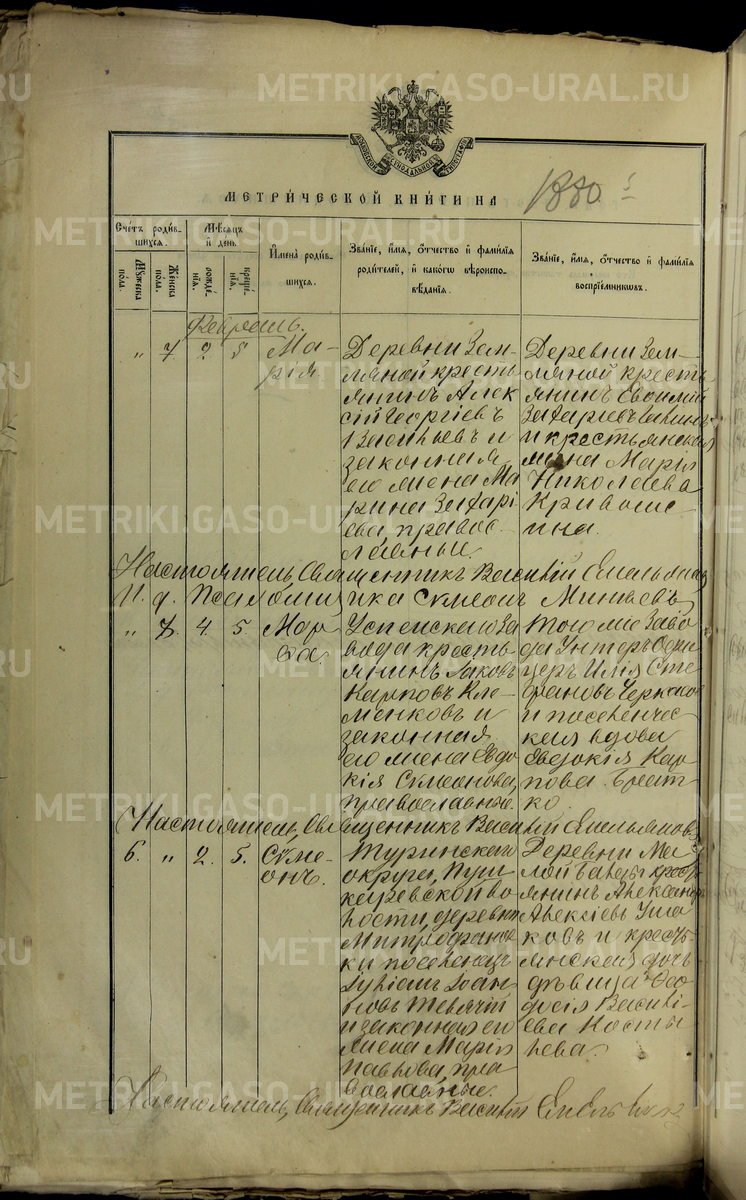 МЕТРИ́ЧЕСКОЙ КНИ́ГИ НА 1880 г
Сче́тъ роди́вшихся.
Му́жеска по́ла.
Же́нска по́ла.
Мѣ́сяцъ и҆ де́нь.
рожде́нїѧ.
креще́нїѧ.
И҆мена̀ роди́вшихся.
Зва́нїе, и҆́мѧ, ѻ҆́тчество и҆ фамѝлїѧ роди́телей, и҆ како́гѡ вѣроисповѣ́данїѧ.
Зва́нїе, и҆́мѧ, ѻ҆́тчество и҆ фамѝлїѧ воспрїе́мникѡвъ.
Февраль.
„ 7 2 5
Ма-
рія
Деревни Зем-
ляной кресть
янинъ Алек
сій Георгіевъ
Васильевъ и
законная
его жена Ма
рина Захарі
ева, правос-
лавные.
Деревни Зем-
ляной кресть
янинъ Евѳимій
Захаровъ
и крестьянская
жена Марія
Николаева
Кривоше-
ина.
Настоятель, Священникъ Василій Емельяновъ
И. д. Псаломщика Сѵмеонъ Минѣевъ
„ 7. 4. 5
Мар
ѳа.
Успенскаго За
вода кресть-
янинъ Іаковъ
Карповъ Кле-
менковъ и
законная
его жена Евдо
кія Сѵмеонова,
православные.
Того же Заво
да Унтеръ Офи
церъ Илія Сте
фановъ
и поселенчес-
кая вдова
Евдокія Кар
пова
Настоятель, Священникъ Василій Емельяновъ
6. „ 2. 5.
Сѵме-
онъ.
Туринскаго
округа, Куш
каревской во
лости, деревни
Митрофанов
ки поселенецъ
Іуліанъ Іоан
новъ
и законная его
жена Марія
Павлова, пра
вославные.
Деревни Ма
лой кресть
янинъ Александръ
Алексіевъ Уша
ковъ и кресть
янская дочь
дѣвица Ѳео
досія Василі-
ева Косты
лева.
Настоятель, Священникъ Василій Емельяновъ
METRIKI.GASO-URAL.RU